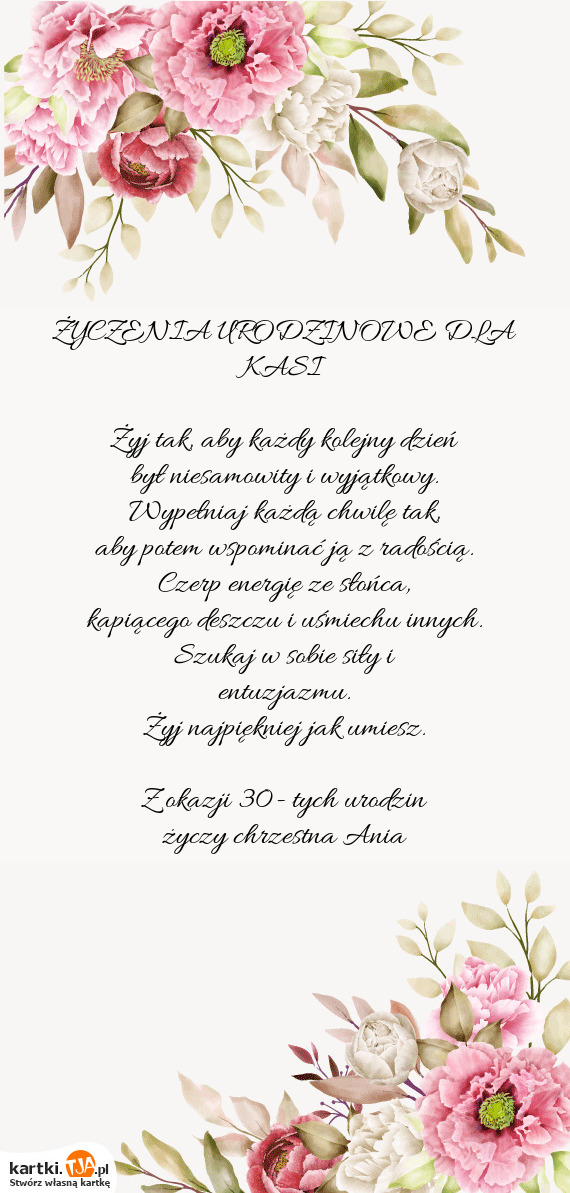 ŻYCZENIA URODZINOWE DLA
KASI
Żyj tak, aby każdy kolejny dzień
był niesamowity i wyjątkowy.
Wypełniaj każdą chwilę tak,
aby potem wspominać ją z radością.
Czerp energię ze słońca,
kapiącego deszczu i uśmiechu innych.
Szukaj w sobie siły i
entuzjazmu.
Żyj najpiękniej jak umiesz.
Z okazji 30 - tych urodzin
życzy chrzestna Ania
kartki.TJA.pl
Stwórz własną kartkę